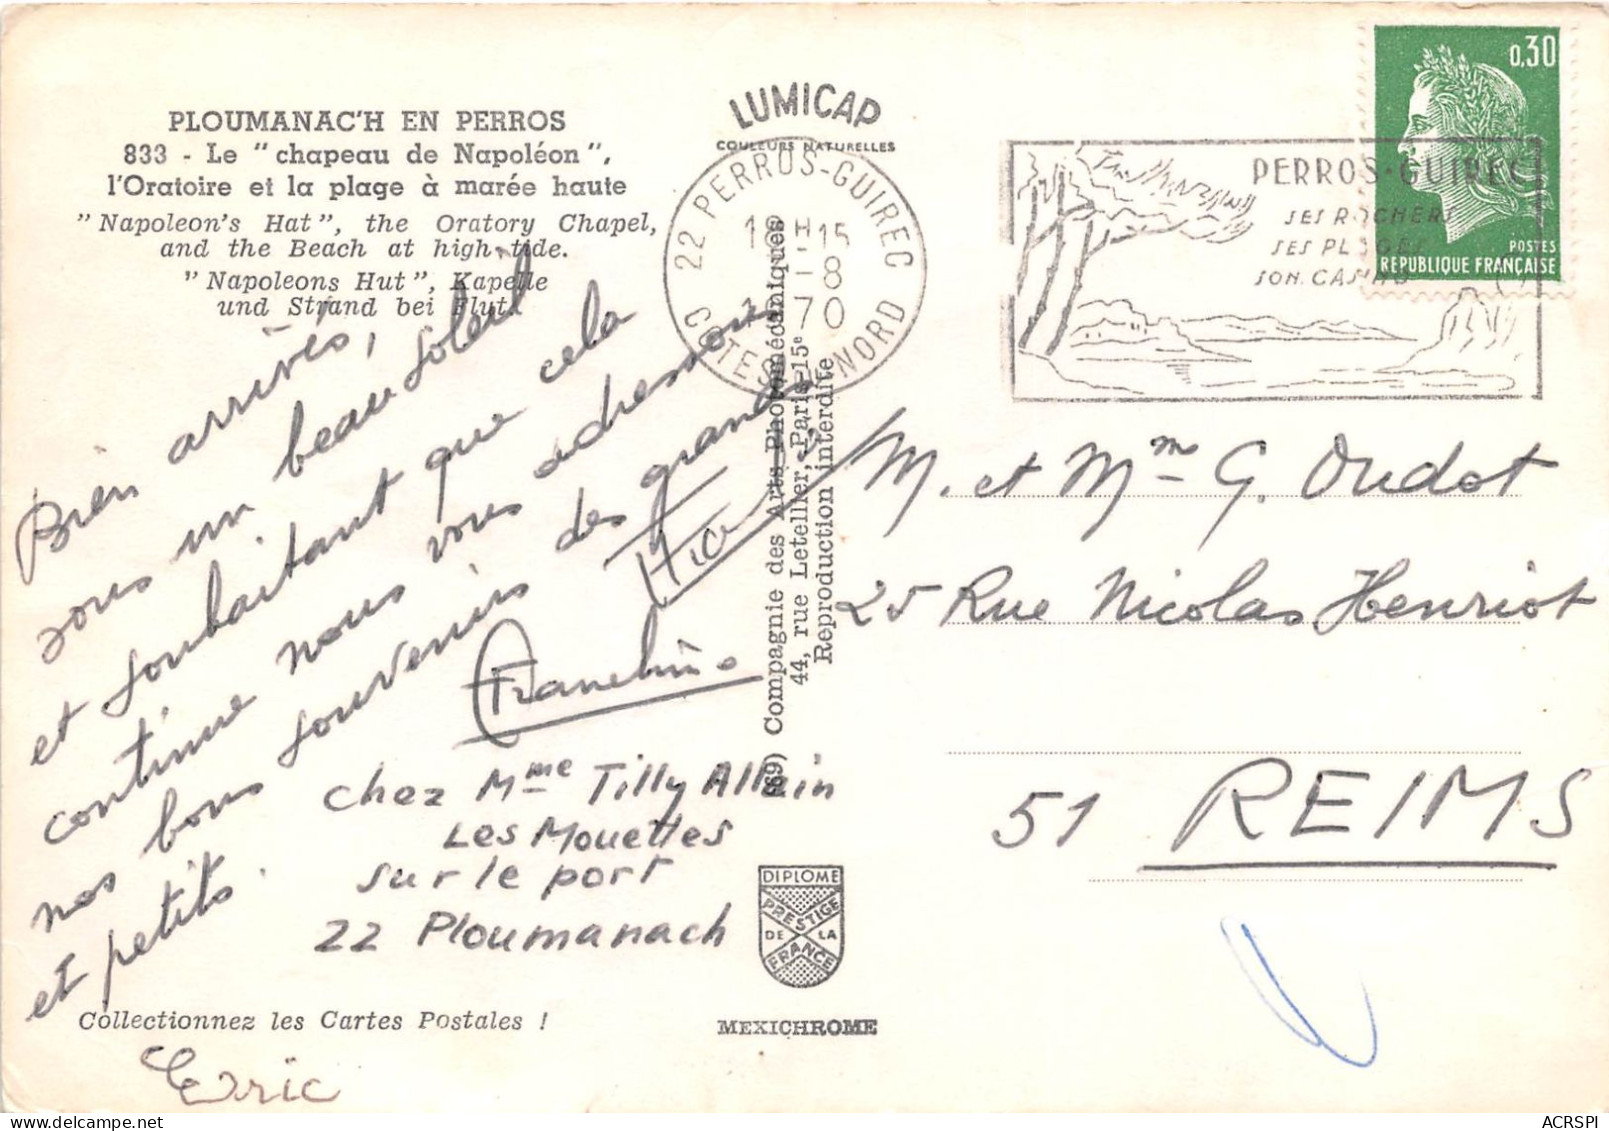 PLOUMANAC'H EN PERROS
833 - Le " chapeau de Napoléon ",
l'Oratoire et la plage à marée haute
" Napoleon's Hat ", the Oratory Chapel,
and the Beach at high tide.
" Napoleons Hut ", Kapelle
und Strand bei Flut.
Bien arrivés,
sous un beau soleil
et souhaitant que cela
continue nous vous adressons
nos bons souvenirs des grands
et petits.
chez Mme Tilly Allain
Les Mouettes
sur le port
22 Ploumanach
Collectionnez les Cartes Postales !
Eric
LUMICAP
COULEURS NATURELLES
22 PERROS-GUIREC
18 H -15
-8
1970
COTES DU NORD
(69) Compagnie des Arts Photomécaniques
44, rue Letellier, Paris-15e
Reproduction interdite
DIPLOME
PRESTIGE
DE LA
FRANCE
MEXICHROME
PERROS-GUIREC
SES ROCHERS
SES PLAGES
SON CASINO
0,30
POSTES
REPUBLIQUE FRANÇAISE
M. et Mme G. Oudot
25 Rue Nicolas Henriot
51 REIMS
ACRSPI